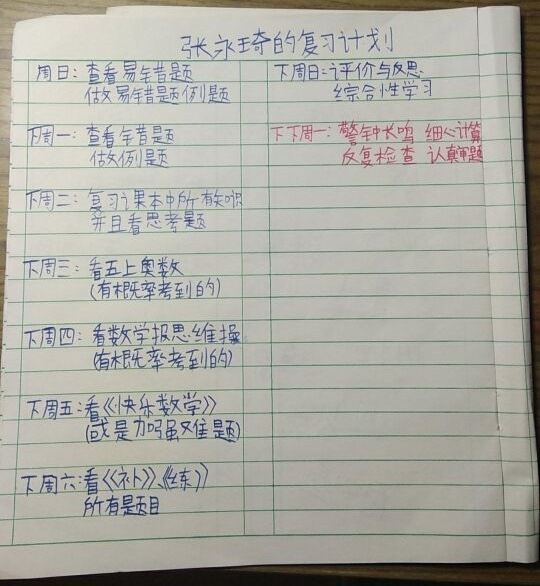 张永琦的复习计划
周日：查看易错题
做易错题例题
下周一：查看错题
做例题
下周二：复习课本中所有知识
并且看思考题
下周三：看五上奥数
(有概率考到的)
下周四：看数学报思维操
(有概率考到的)
下周五：看《快乐数学》
(或是加强难题)
下周六：看《补》、《练》
所有题目
下周日：评价与反思
综合性学习
下下周一：警钟长鸣 细心计算
反复检查 认真审题